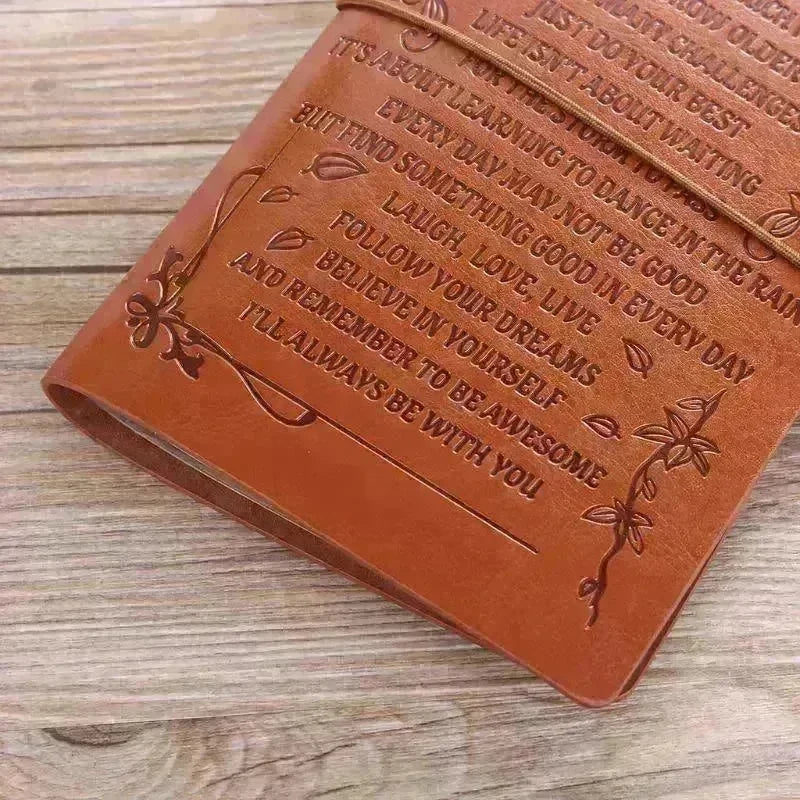 GROW OLDER
MANY CHALLENGES
JUST DO YOUR BEST
LIFE ISN'T ABOUT WAITING
FOR THE STORM TO PASS
IT'S ABOUT LEARNING TO DANCE IN THE RAIN
EVERY DAY MAY NOT BE GOOD
BUT FIND SOMETHING GOOD IN EVERY DAY
LAUGH, LOVE, LIVE
FOLLOW YOUR DREAMS
BELIEVE IN YOURSELF
AND REMEMBER TO BE AWESOME
I'LL ALWAYS BE WITH YOU